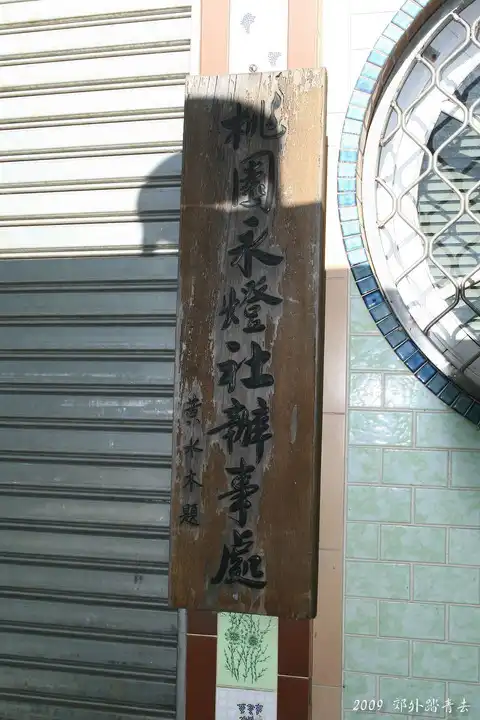 桃園永燈社辦事處
黃水木題
2009 郊外踏青去